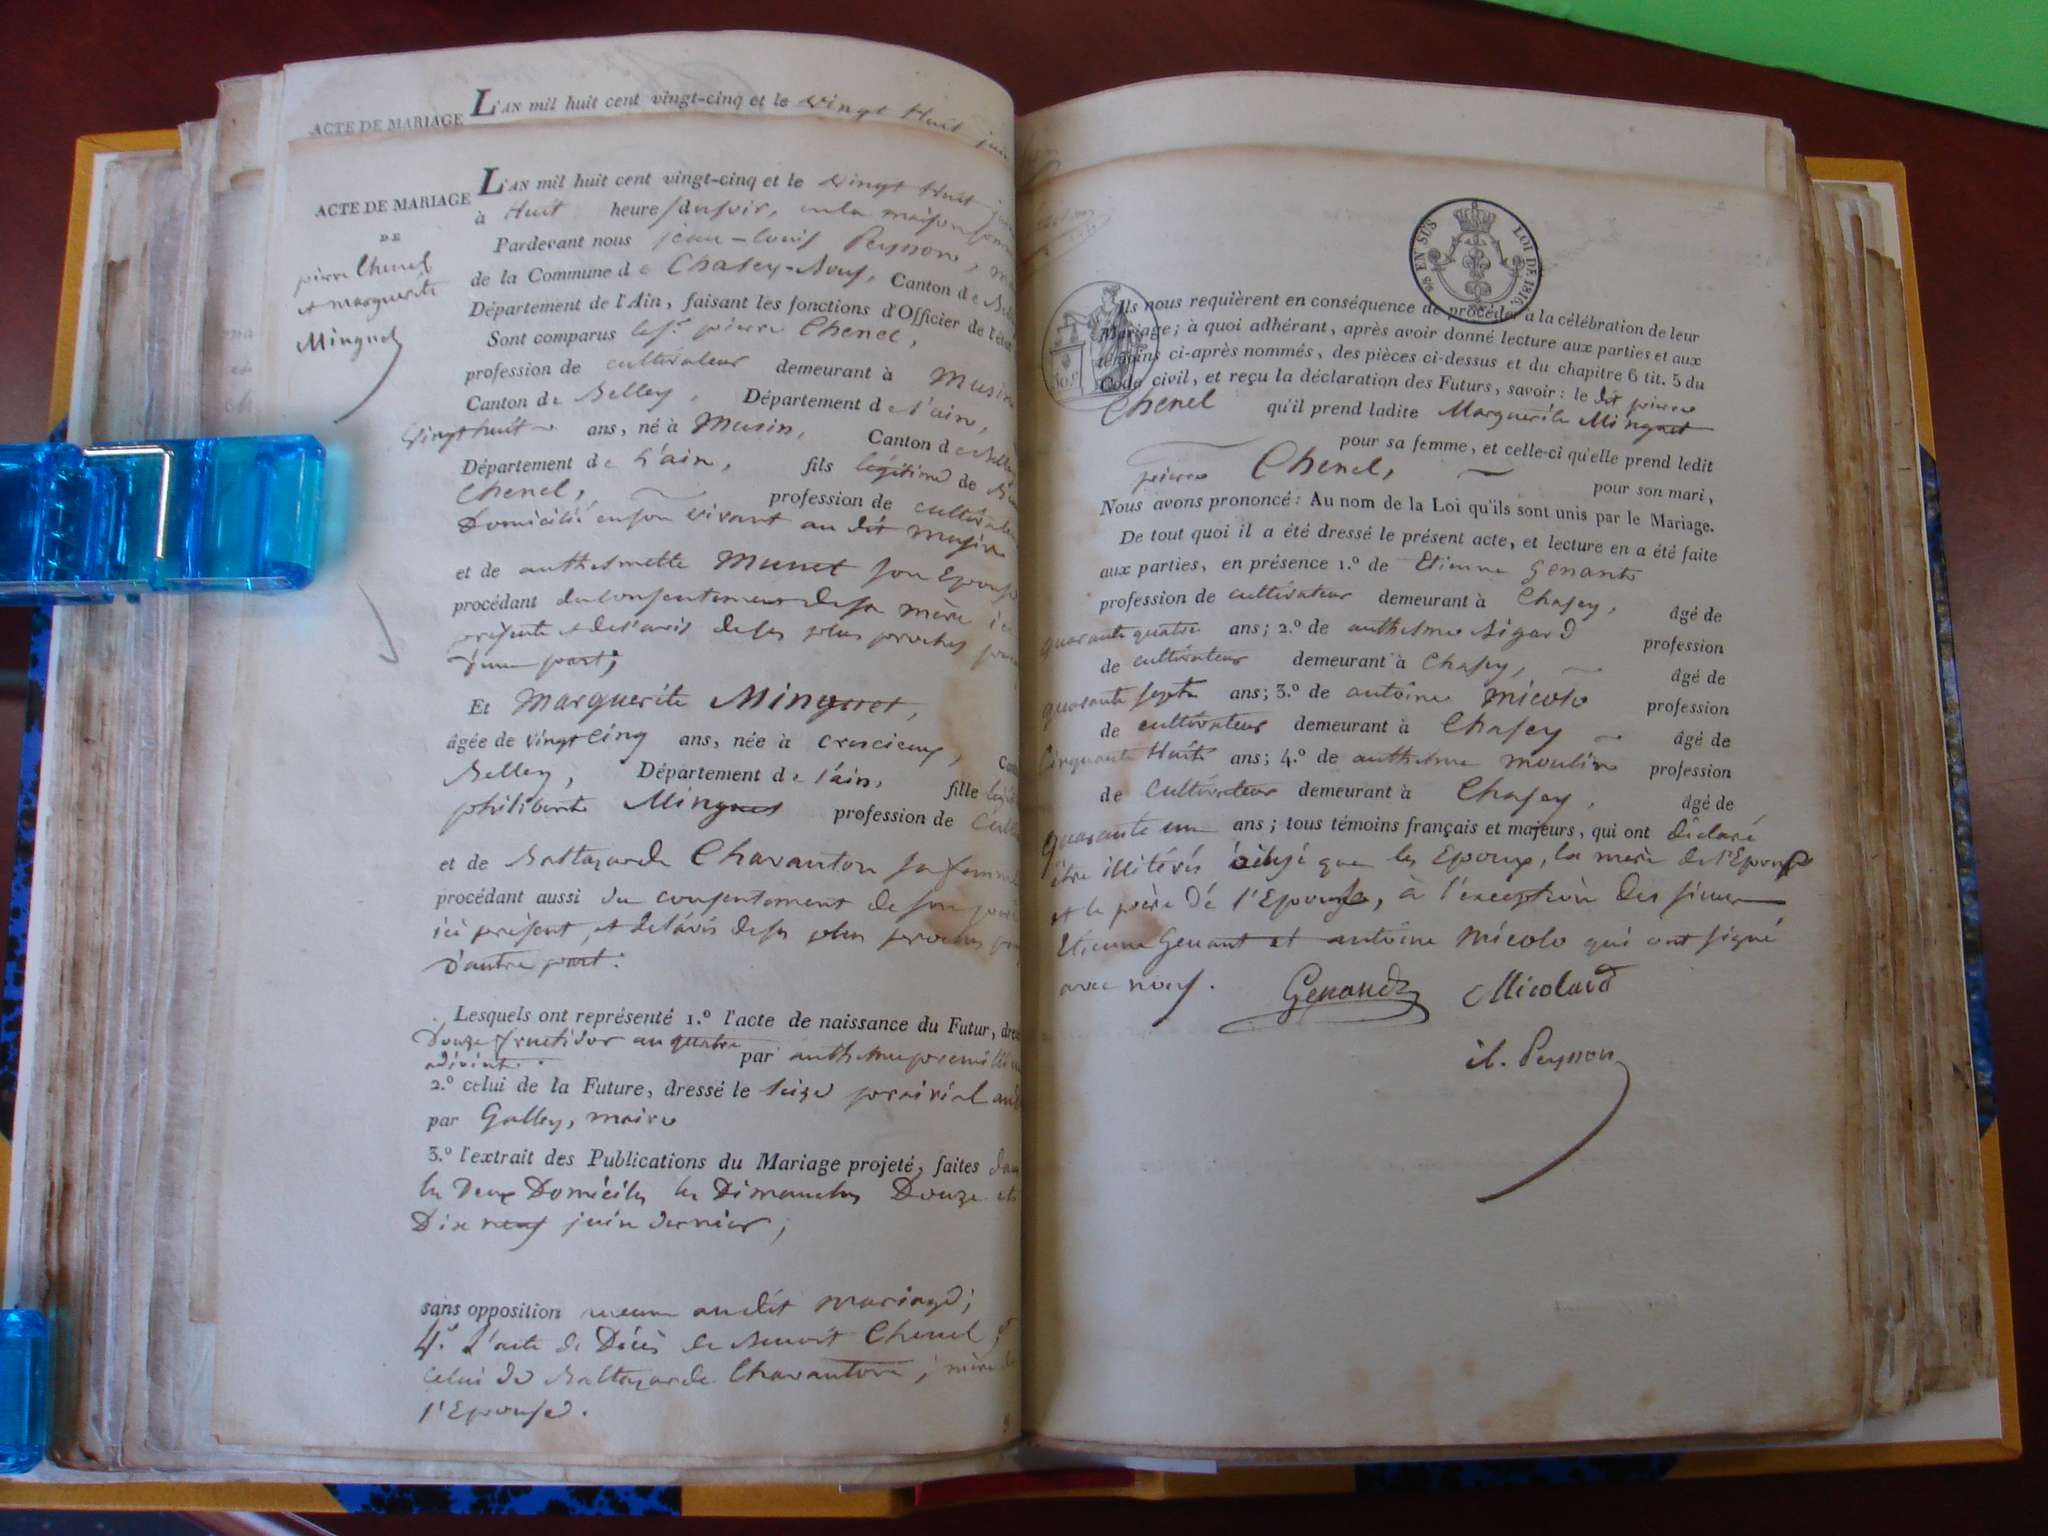 ACTE DE MARIAGE
L'AN mil huit cent vingt-cinq et le vingt Huit juin
ACTE DE MARIAGE
DE
pierre Chenel
et marguerite
Minguet
L'AN mil huit cent vingt-cinq et le vingt Huit
à Huit heures du soir, en la maison
Pardevant nous jean-louis Peysson,
de la Commune de Chasey-Bons, Canton de
Département de l'Ain, faisant les fonctions d'Officier de l'état
Sont comparus le sr. pierre Chenel,
profession de cultivateur demeurant à Musin
Canton de Belley, Département de l'ain,
vingt huit ans, né à Musin, Canton de Belley
Département de l'ain, fils légitime de
Chenel, profession de cultivateur
Domicilié en son vivant au dit musin
et de anthelmette Munet son Epouse
procédant du consentement de sa mère ici
présente et de l'avis de ses plus proches
d'une part;
Et Marguerite Minguet,
âgée de vingt Cinq ans, née à
Belley, Département de l'ain, fille
philiberte Minguet profession de
et de Baltazarde Chavanton sa femme
procédant aussi du consentement de son père
ici présent, et de l'avis de ses plus proches
d'autre part.
Lesquels ont représenté 1.º l'acte de naissance du Futur,
Douze fructidor an quatre par
adjoint.
2.º celui de la Future, dressé le seize prairial
par Galley, maire
3.º l'extrait des Publications du Mariage projeté, faites dans
les Deux Domiciles les Dimanches Douze et
Dix neuf juin dernier;
sans opposition aucune audit mariage;
4.º L'acte de Décès de Benoit Chenel &
Celui de Baltazarde Chavanton, mère de
l'Epouse.
98 EN SUS LOI DE 1816.
Ils nous requièrent en conséquence de procéder à la célébration de leur
Mariage; à quoi adhérant, après avoir donné lecture aux parties et aux
témoins ci-après nommés, des pièces ci-dessus et du chapitre 6 tit. 5 du
Code civil, et reçu la déclaration des Futurs, savoir: le dit pierre
Chenel qu'il prend ladite Marguerite Minguet
pour sa femme, et celle-ci qu'elle prend ledit
pierre Chenel, pour son mari,
Nous avons prononcé: Au nom de la Loi qu'ils sont unis par le Mariage.
De tout quoi il a été dressé le présent acte, et lecture en a été faite
aux parties, en présence 1.º de Etienne Genant
profession de cultivateur demeurant à Chasey, âgé de
quarante quatre ans; 2.º de anthelme Sigard profession
de cultivateur demeurant à Chasey, âgé de
quarante sept ans; 3.º de antoine Micolo profession
de cultivateur demeurant à Chasey âgé de
Cinquante Huit ans; 4.º de anthelme moulin profession
de Cultivateur demeurant à Chasey, âgé de
quarante un ans; tous témoins français et majeurs, qui ont déclaré
être illitérés ainsi que les Epoux, la mère de l'Epoux
et le père de l'Epouse, à l'exception des sieurs
Etienne Genant et antoine Micolo qui ont signé
avec nous. Genand Micolaud
Peysson